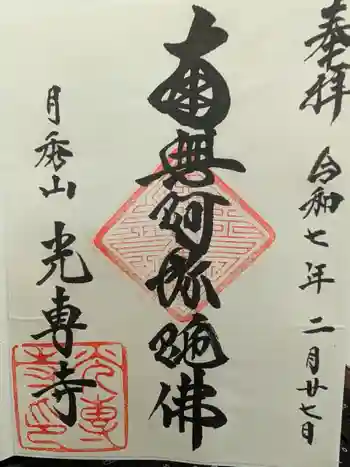 奉拝
令和七年二月廿七日
南無阿弥陀佛
月秀山
光專寺
光專寺印